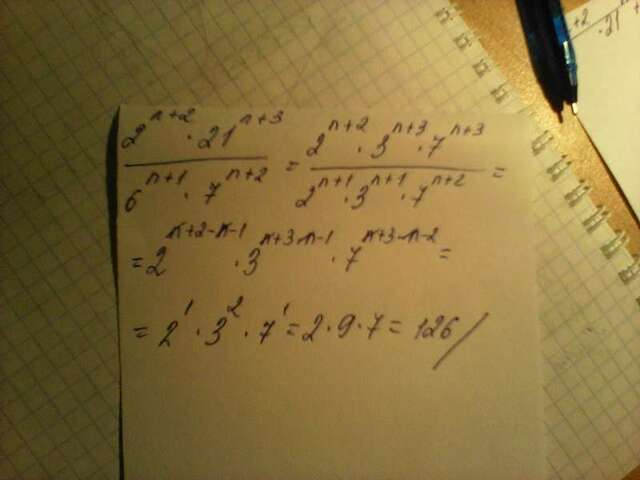 2^{n+2} · 21^{n+3} / 6^{n+1} · 7^{n+2} = 2^{n+2} · 3^{n+3} · 7^{n+3} / 2^{n+1} · 3^{n+1} · 7^{n+2} =
= 2^{n+2-n-1} · 3^{n+3-n-1} · 7^{n+3-n-2} =
= 2^1 · 3^2 · 7^1 = 2 · 9 · 7 = 126 /
+2
· 21